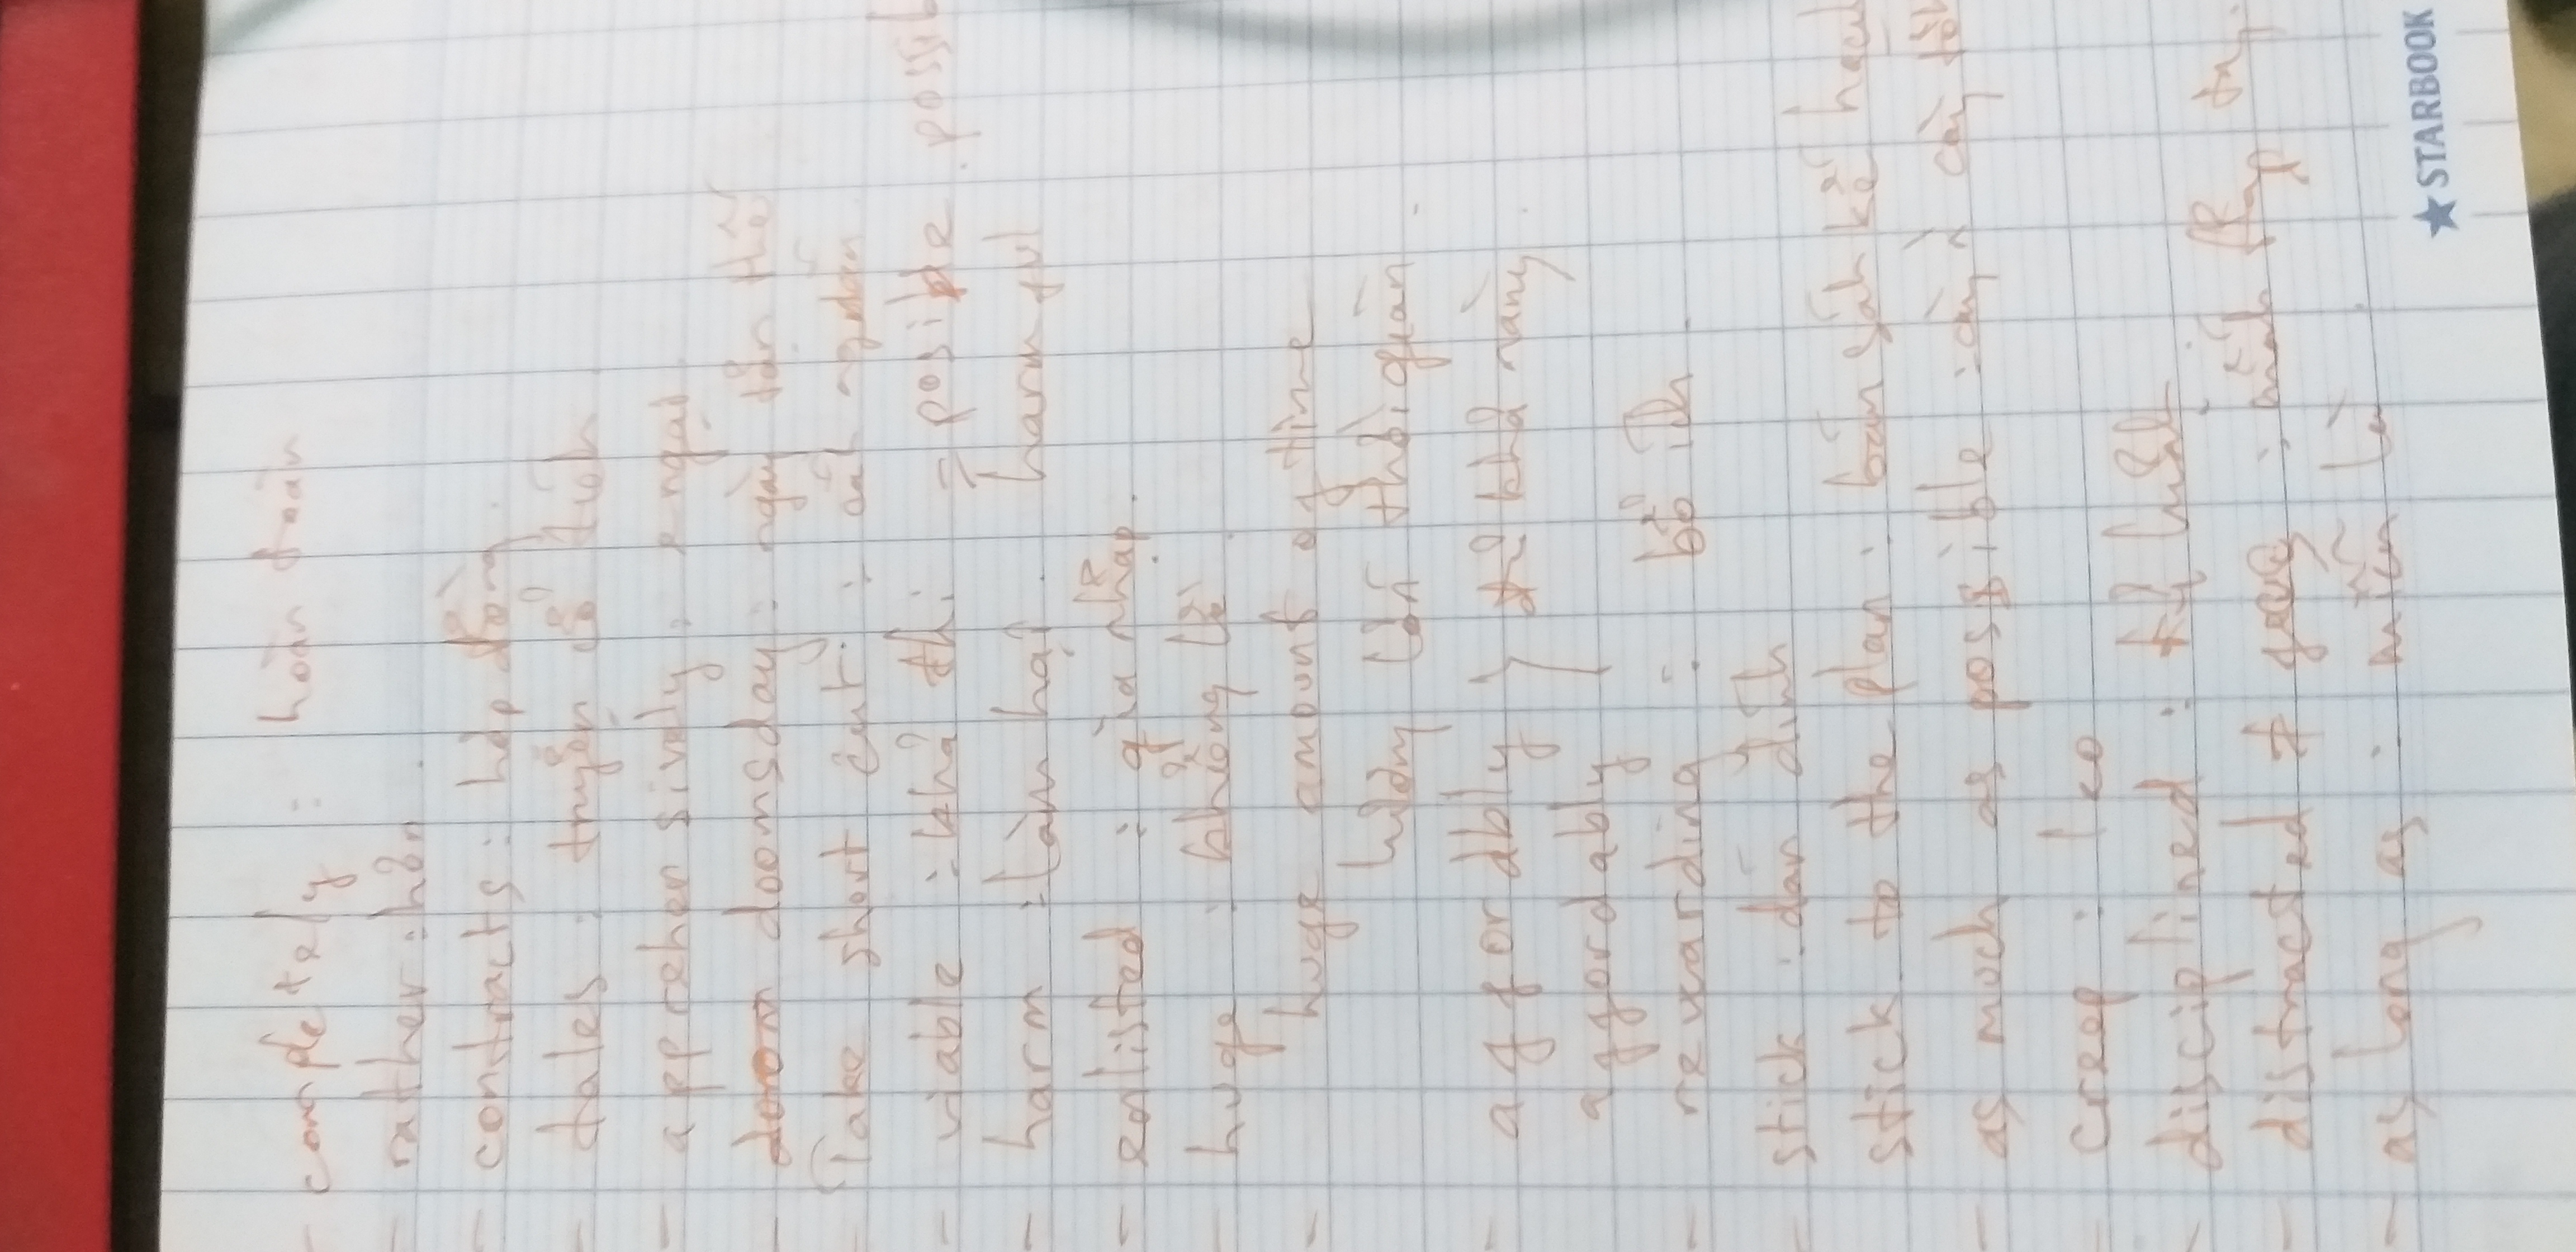 - completely : hoàn toàn
- rather : hơn .
- contracts : hợp đồng .
- tales : truyện cổ tích
- apprehensively : e ngại
- doomsday : ngày tận thế
- Take short cut : cắt ngắn
- viable : khả thi = posible . possib
- harm : làm hại . harmful
- enlisted : gia nhập .
- huge : khổng lồ .
- huge amount of time
lượng lớn thời gian .
- affordbly } khả năng .
affordably
- rewarding : bổ ích .
- stick : dán dính
stick to the plan : bám sát kế hoạch
- as much as possible : càng càng tốt
- creep : leo
- disciplined : kỷ luật .
- distracted ≠ : mất tập
- as long as : miễn là
STARBOOK